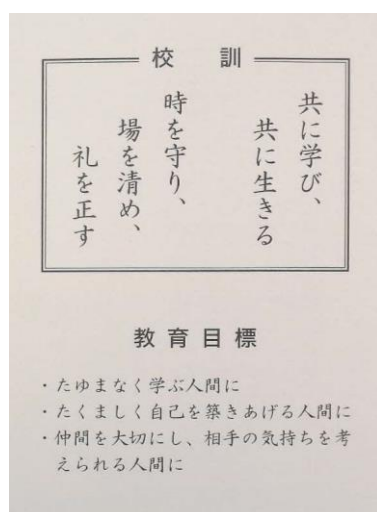 校訓
共に学び、
共に生きる
時を守り、
場を清め、
礼を正す
教育目標
・たゆまなく学ぶ人間に
・たくましく自己を築きあげる人間に
・仲間を大切にし、相手の気持ちを考
えられる人間に